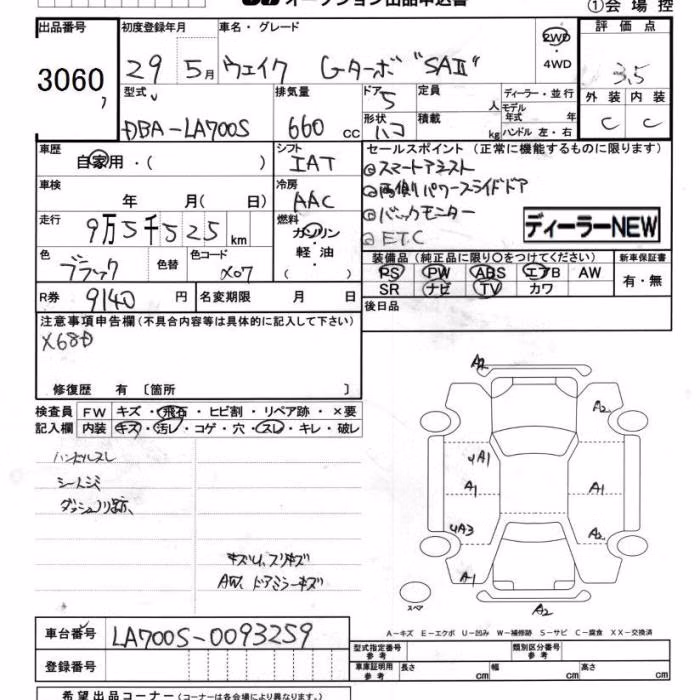 オークション出品申込書
①会場控
出品番号 初度登録年月 車名・グレード 評価点
3060 29 5月 ウェイク Gターボ "SAⅡ" 2WD ・ 4WD 3.5
型式 排気量 ドア 定員 ディーラー・並行 外装 内装
DBA-LA700S 660 cc 5 人 モデル年式 年 C C
形状 積載 ハンドル 左・右
ハコ kg
車歴 シフト セールスポイント (正常に機能するものに限ります)
自家用・( ) IAT ◎スマートアシスト
車検 冷房 ◎両側パワースライドドア
年 月( 日) AAC ◎バックモニター
走行 燃料 ディーラーNEW
9万5千525km ガソリン・軽油・( ) ◎ETC
色 色替 色コード 装備品 (純正品に限り〇をつけてください) 新車保証書
ブラック X07 PS PW ABS エアB AW 有・無
R券 名変期限 SR ナビ TV カワ
9140円 月 日 後日品
注意事項申告欄(不具合内容等は具体的に記入して下さい)
修復歴 有 〔箇所 〕
検査員 FW キズ・飛石・ヒビ割・リペア跡・×要
記入欄 内装 キズ・汚レ・コゲ・穴・スレ・キレ・破レ
ハンドルスレ
シートシミ
A2
A2
4A1
A1 A1
4A3 A2
A1
A2
スペア
AW、ドアミラーキズ
A-キズ E-エクボ U-凹み W-補修跡 S-サビ C-腐食 XX-交換済
車台番号 LA700S-0093259
登録番号
型式指定番号 参考 類別区分番号 参考
車庫証明用 参考 長さ cm 幅 cm 高さ cm
希望出品コーナー(コーナーは各会場により異なります。)